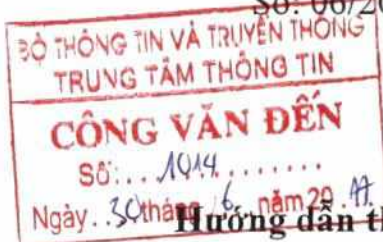 Số: 06/20
BỘ THÔNG TIN VÀ TRUYỀN THÔNG
TRUNG TÂM THÔNG TIN
CÔNG VĂN ĐẾN
Số:...1014........
Ngày..30tháng 6 năm 20.17.
Hướng dẫn th